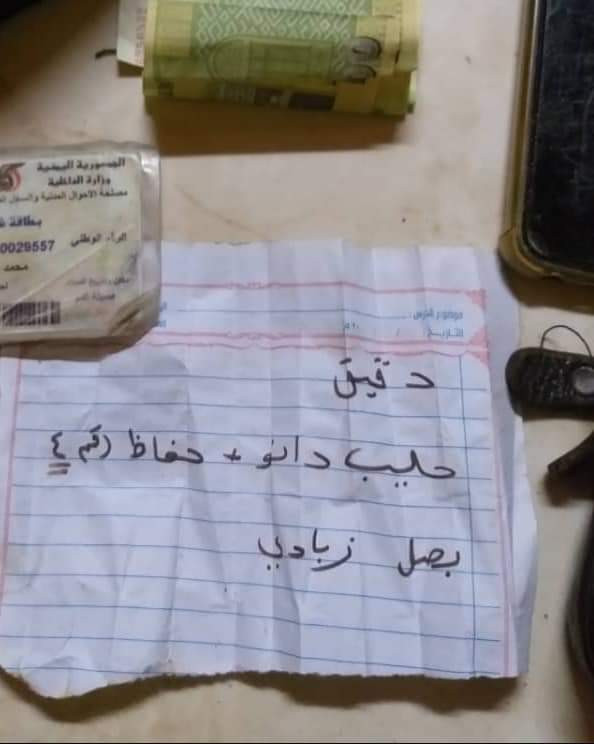 الجمهورية اليمنية
وزارة الداخلية
مصلحة الأحوال المدنية والسجل
بطاقة
الرقم الوطني
0029557
محمد
موضوع الدرس
التاريخ / / ٢٠
دقيق
حليب دانو + حفاظ رقم ٤
بصل زبادي